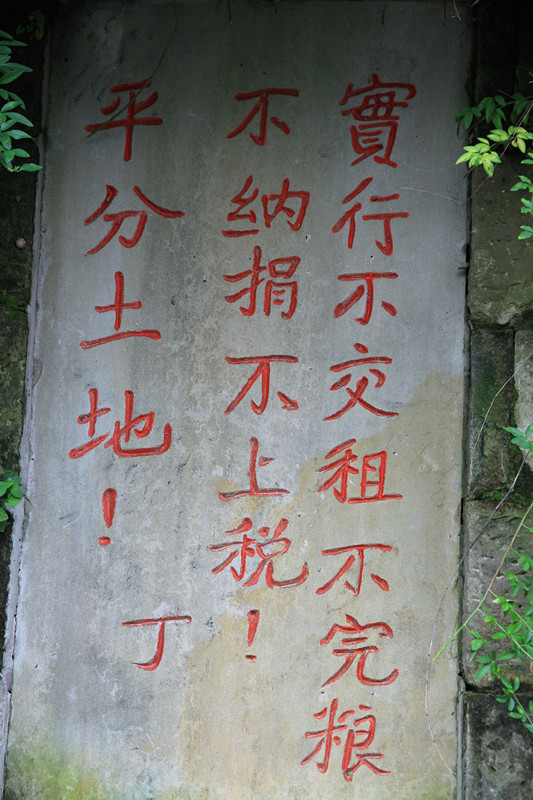 實行不交租不完粮
不納捐不上税！
平分土地！ 丁